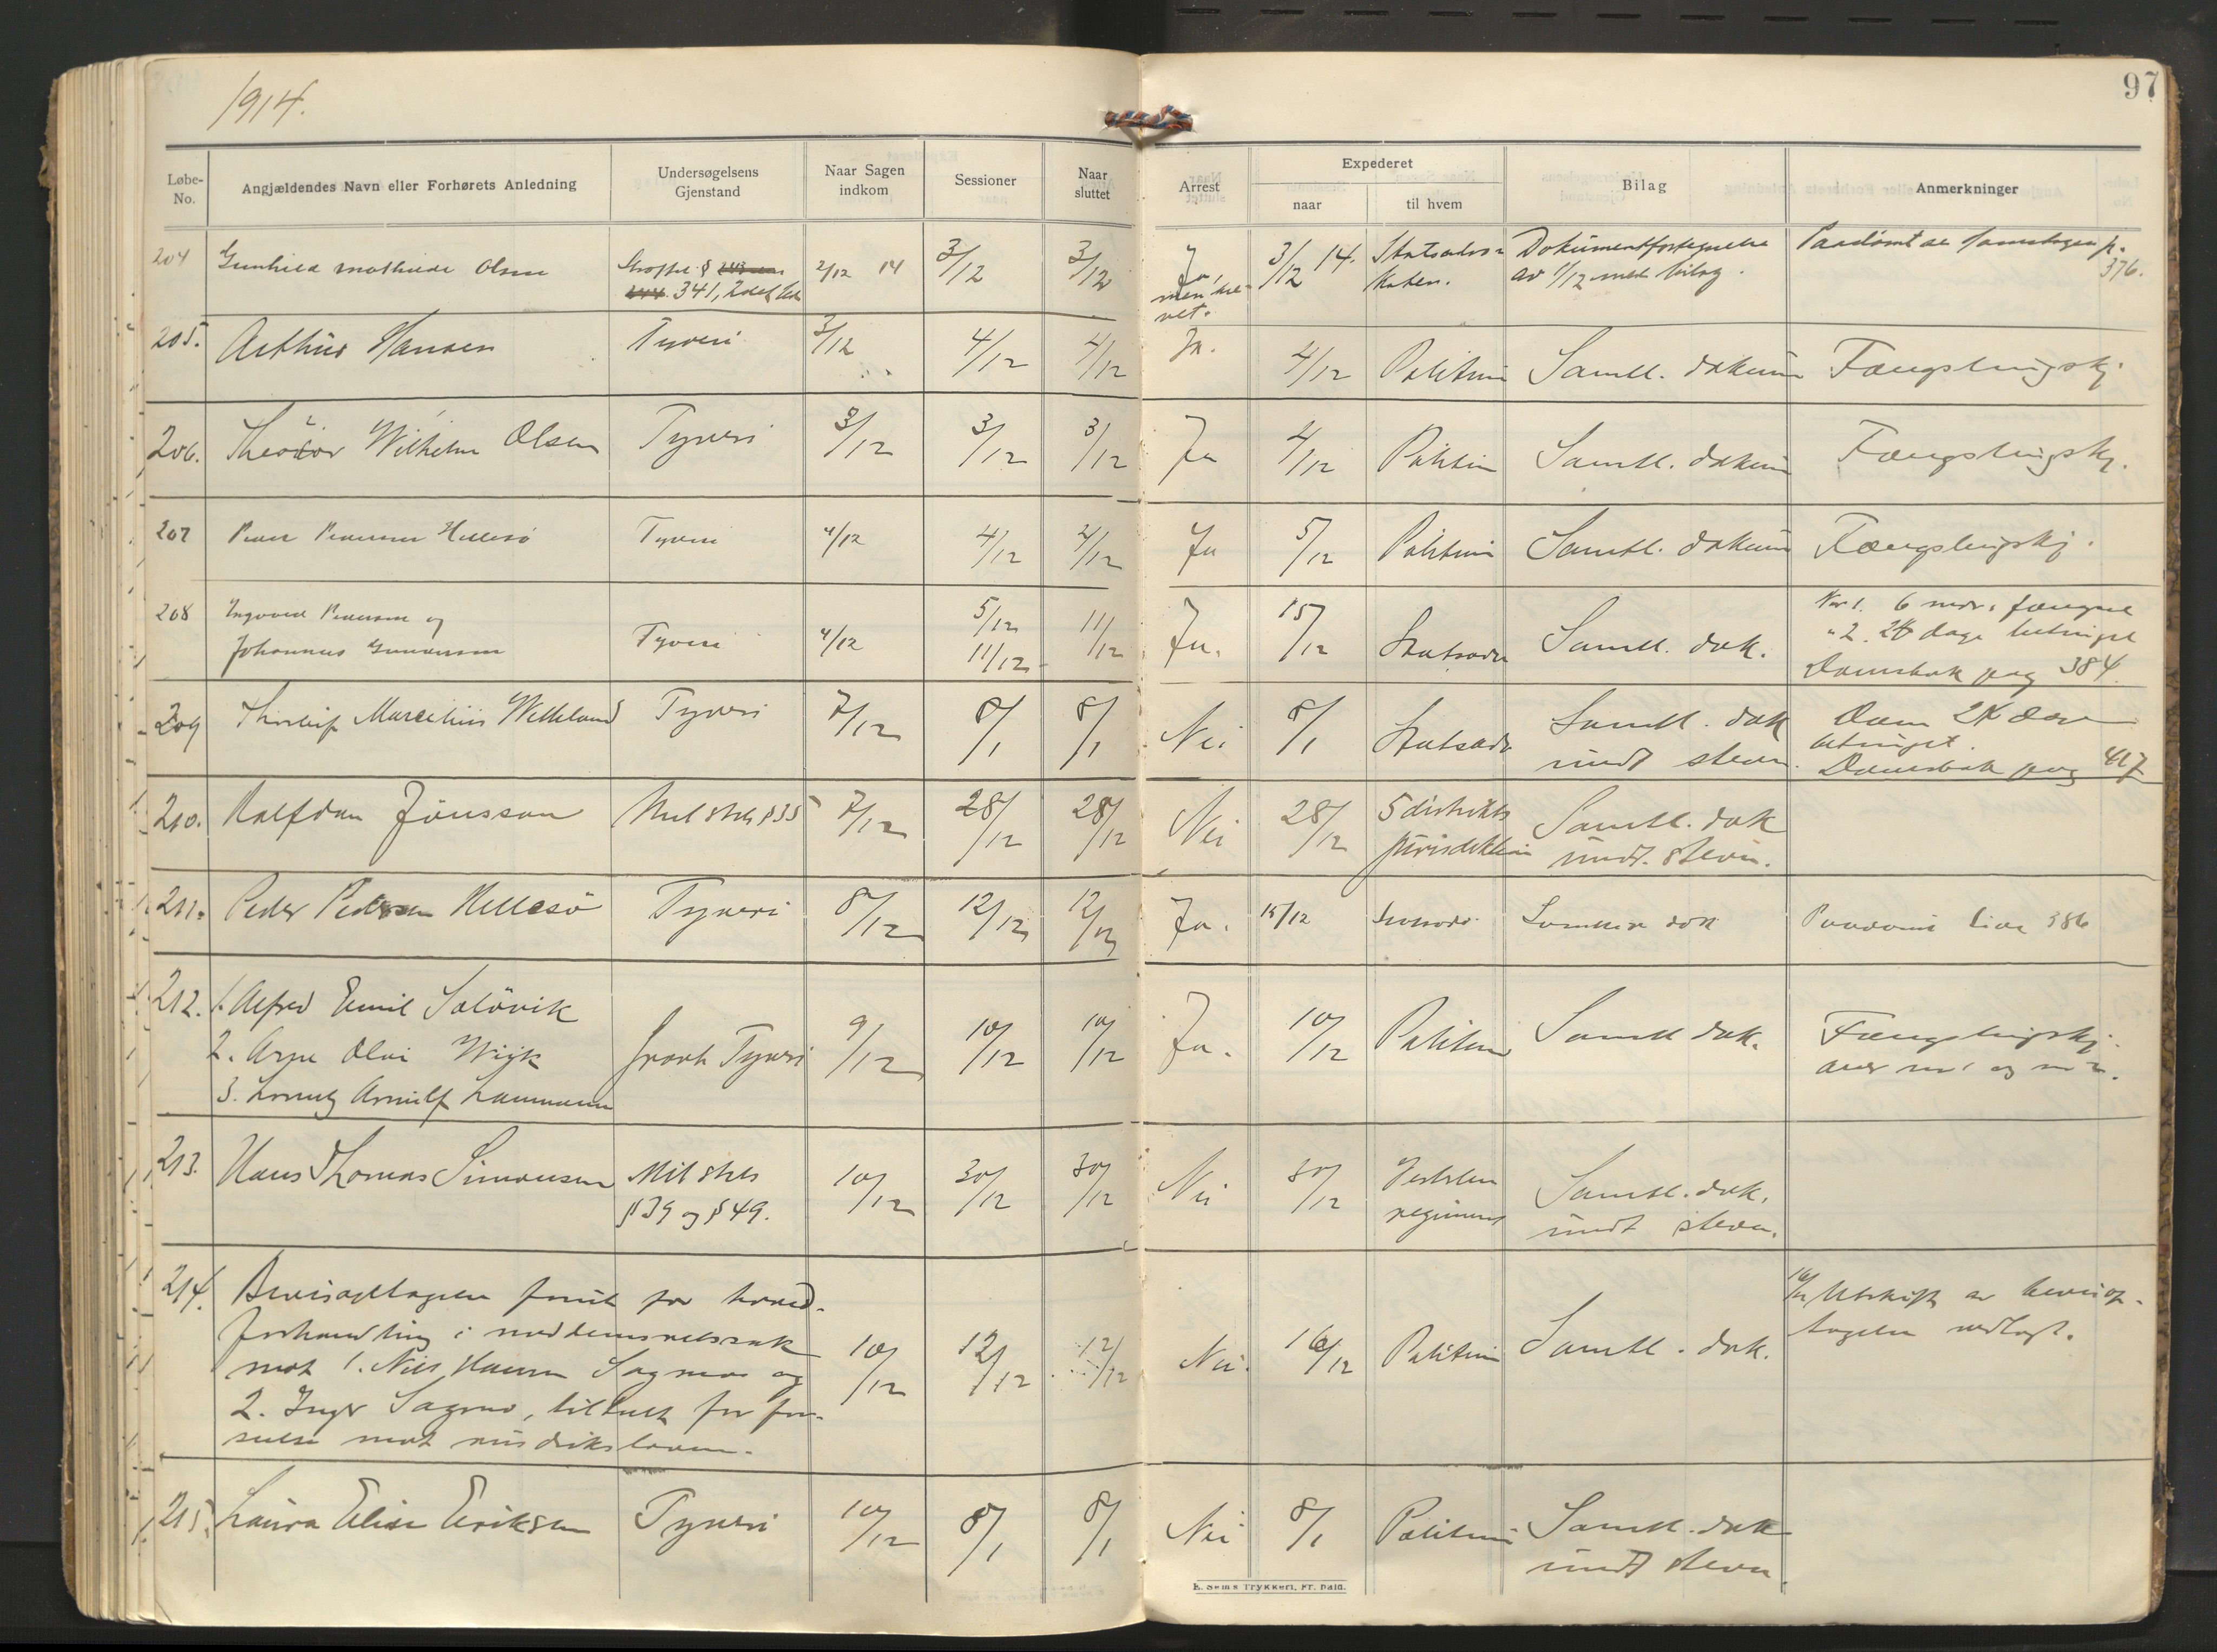 1914.
97
Løbe-No. Angjældendes Navn eller Forhørets Anledning Undersøgelsens Gjenstand Naar Sagen indkom Sessioner Naar sluttet Arrest Expederet naar til hvem Bilag Anmerkninger
204 Gunhild Mathilde Olsen Straffel. § 341, 2det led 2/12 14 3/12 3/12 Ja, men 3/12 14. Statsadvokaten. Dokumentfortegnelse
av 1/12 med bilag. p. 376.
205. Arthur Hansen Tyveri 3/12 4/12 4/12 Ja. 4/12 Politiet Samtl. dokum Fængslingskj.
206. Theodor Wilhelm Olsen Tyveri 3/12 3/12 3/12 Ja 4/12 Politiet Samtl. dokum Fængslingskj.
207 Peder Pedersen Hillesö Tyveri 4/12 4/12 4/12 Ja 5/12 Politiet Samtl. dokum Fængslingskj.
208 Ingvald Pedersen og 5/12 Nr 1. 6 mdr. fængsel
Johannes Gundersen Tyveri 4/12 11/12 11/12 Ja. 15/12 Statsadv Samtl. dok. " 2. dage betinget
Domsbok pag 384
209 Thorleif Marcelius Tyveri 7/12 8/1 8/1 Nei 8/1 Statsadv Samtl. dok Dom
undt stevn. betinget.
Domsbok pag 417
210. Halfdan Jönsson Mil strl § 35 7/12 28/12 28/12 Nei 28/12 5 distrikts Samtl. dok
jurisdiktion undt. stevn.
211. Peder Pedersen Hillesö Tyveri 8/12 12/12 12/12 Ja. 15/12 Statsadv. Samtlige dok Paadömt 386
212. 1. Alfred Emil Solövik
2. Arne Olai Wiik Grovt Tyveri 9/12 10/12 10/12 Ja. 10/12 Politiet Samtl dok. Fængslingskj.
3. Arnulf over nr 1 og nr 2.
213. Hans Thomas Simonsen Mil strl 10/12 30/12 30/12 Nei 30/12 Samtl. dok.
§ 39 og § 49. regiment undt stevn.
214. Bevisoptagelse forut for hoved- Utskrift av bevisop-
forhandling i meddomsretssak tagelse vedlagt.
mot 1. Nils Hansen Sagmo og 10/12 12/12 12/12 Nei. 16/12 Politiet Samtl. dok.
2. Inger Sagmo, tiltalt for for-
seelse mot rusdrikloven.
215. Laura Elise Eriksen Tyveri 10/12 8/1 8/1 Nei 8/1 Politiet Samtl. dok
undt stevn.
E. Sems Trykkeri, Fr. hald.